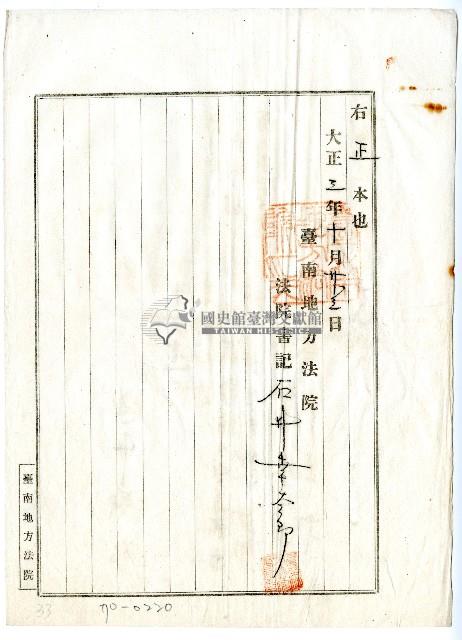 右正本也
大正三年十月廿三日
臺南地方法院
法院書記 石井幸次郎
臺南地方法院
國史館臺灣文獻館
TAIWAN HISTORICA
33
70-0220